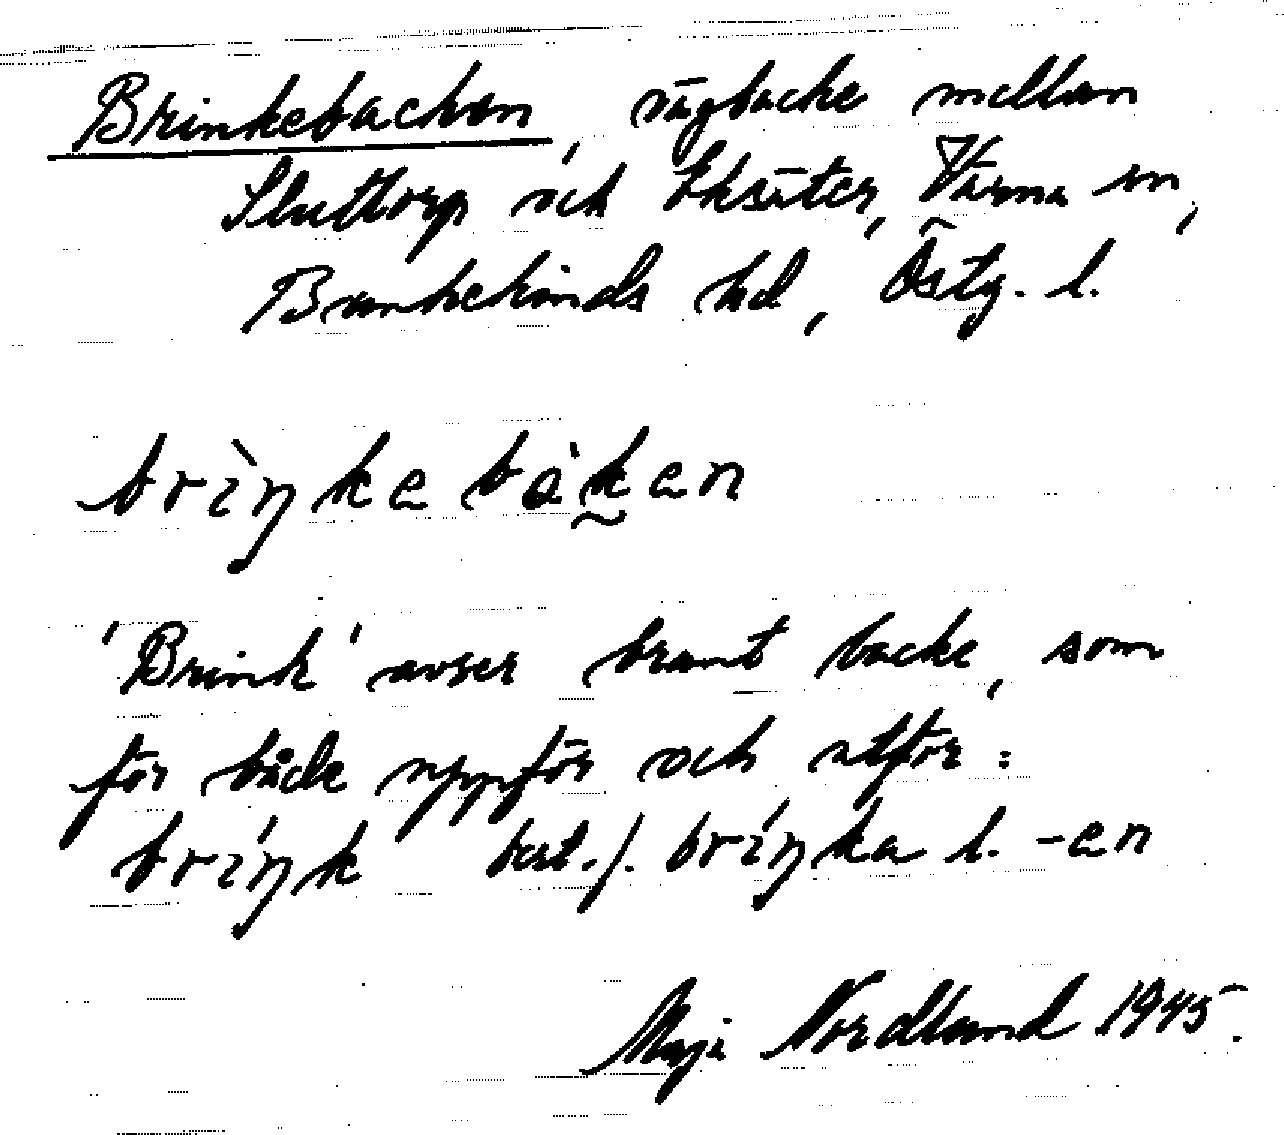 Brinkebacken, vägbacke mellan
Sluttorp och Eksäter, Värna sn,
Bankekinds hd, Östg. l.
brìŋkebàken
'Brink' avser brant backe, som
för både uppför och utför:
bríŋk best. f. bríŋka l. -en
Maja Nordlund 1945.